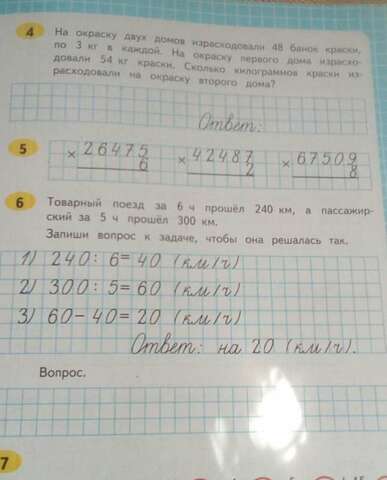 4
На окраску двух домов израсходовали 48 банок краски,
по 3 кг в каждой. На окраску первого дома израсхо-
довали 54 кг краски. Сколько килограммов краски из-
расходовали на окраску второго дома?
Ответ:
5
× 26475 × 42487 × 67509
6 2 8
6
Товарный поезд за 6 ч прошёл 240 км, а пассажир-
ский за 5 ч прошёл 300 км.
Запиши вопрос к задаче, чтобы она решалась так.
1) 240 : 6 = 40 (км/ч)
2) 300 : 5 = 60 (км/ч)
3) 60 − 40 = 20 (км/ч)
Ответ: на 20 (км/ч).
Вопрос.
7